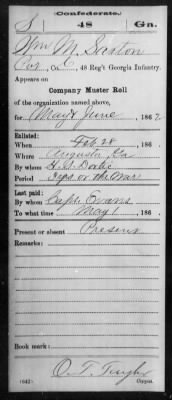 (Confederate.)
S 48 Ga.
Wm M. Saxton
Cor, Co. C, 48 Reg't Georgia Infantry.
Appears on
Company Muster Roll
of the organization named above,
for May & June, 1862
Enlisted:
When Feb 28, 186
Where Augusta, Ga
By whom
Period 3 yrs or the War
Last paid:
By whom Capt. Evans
To what time May 1, 186
Present or absent Present
Remarks:
Book mark:
(642) Copyist.